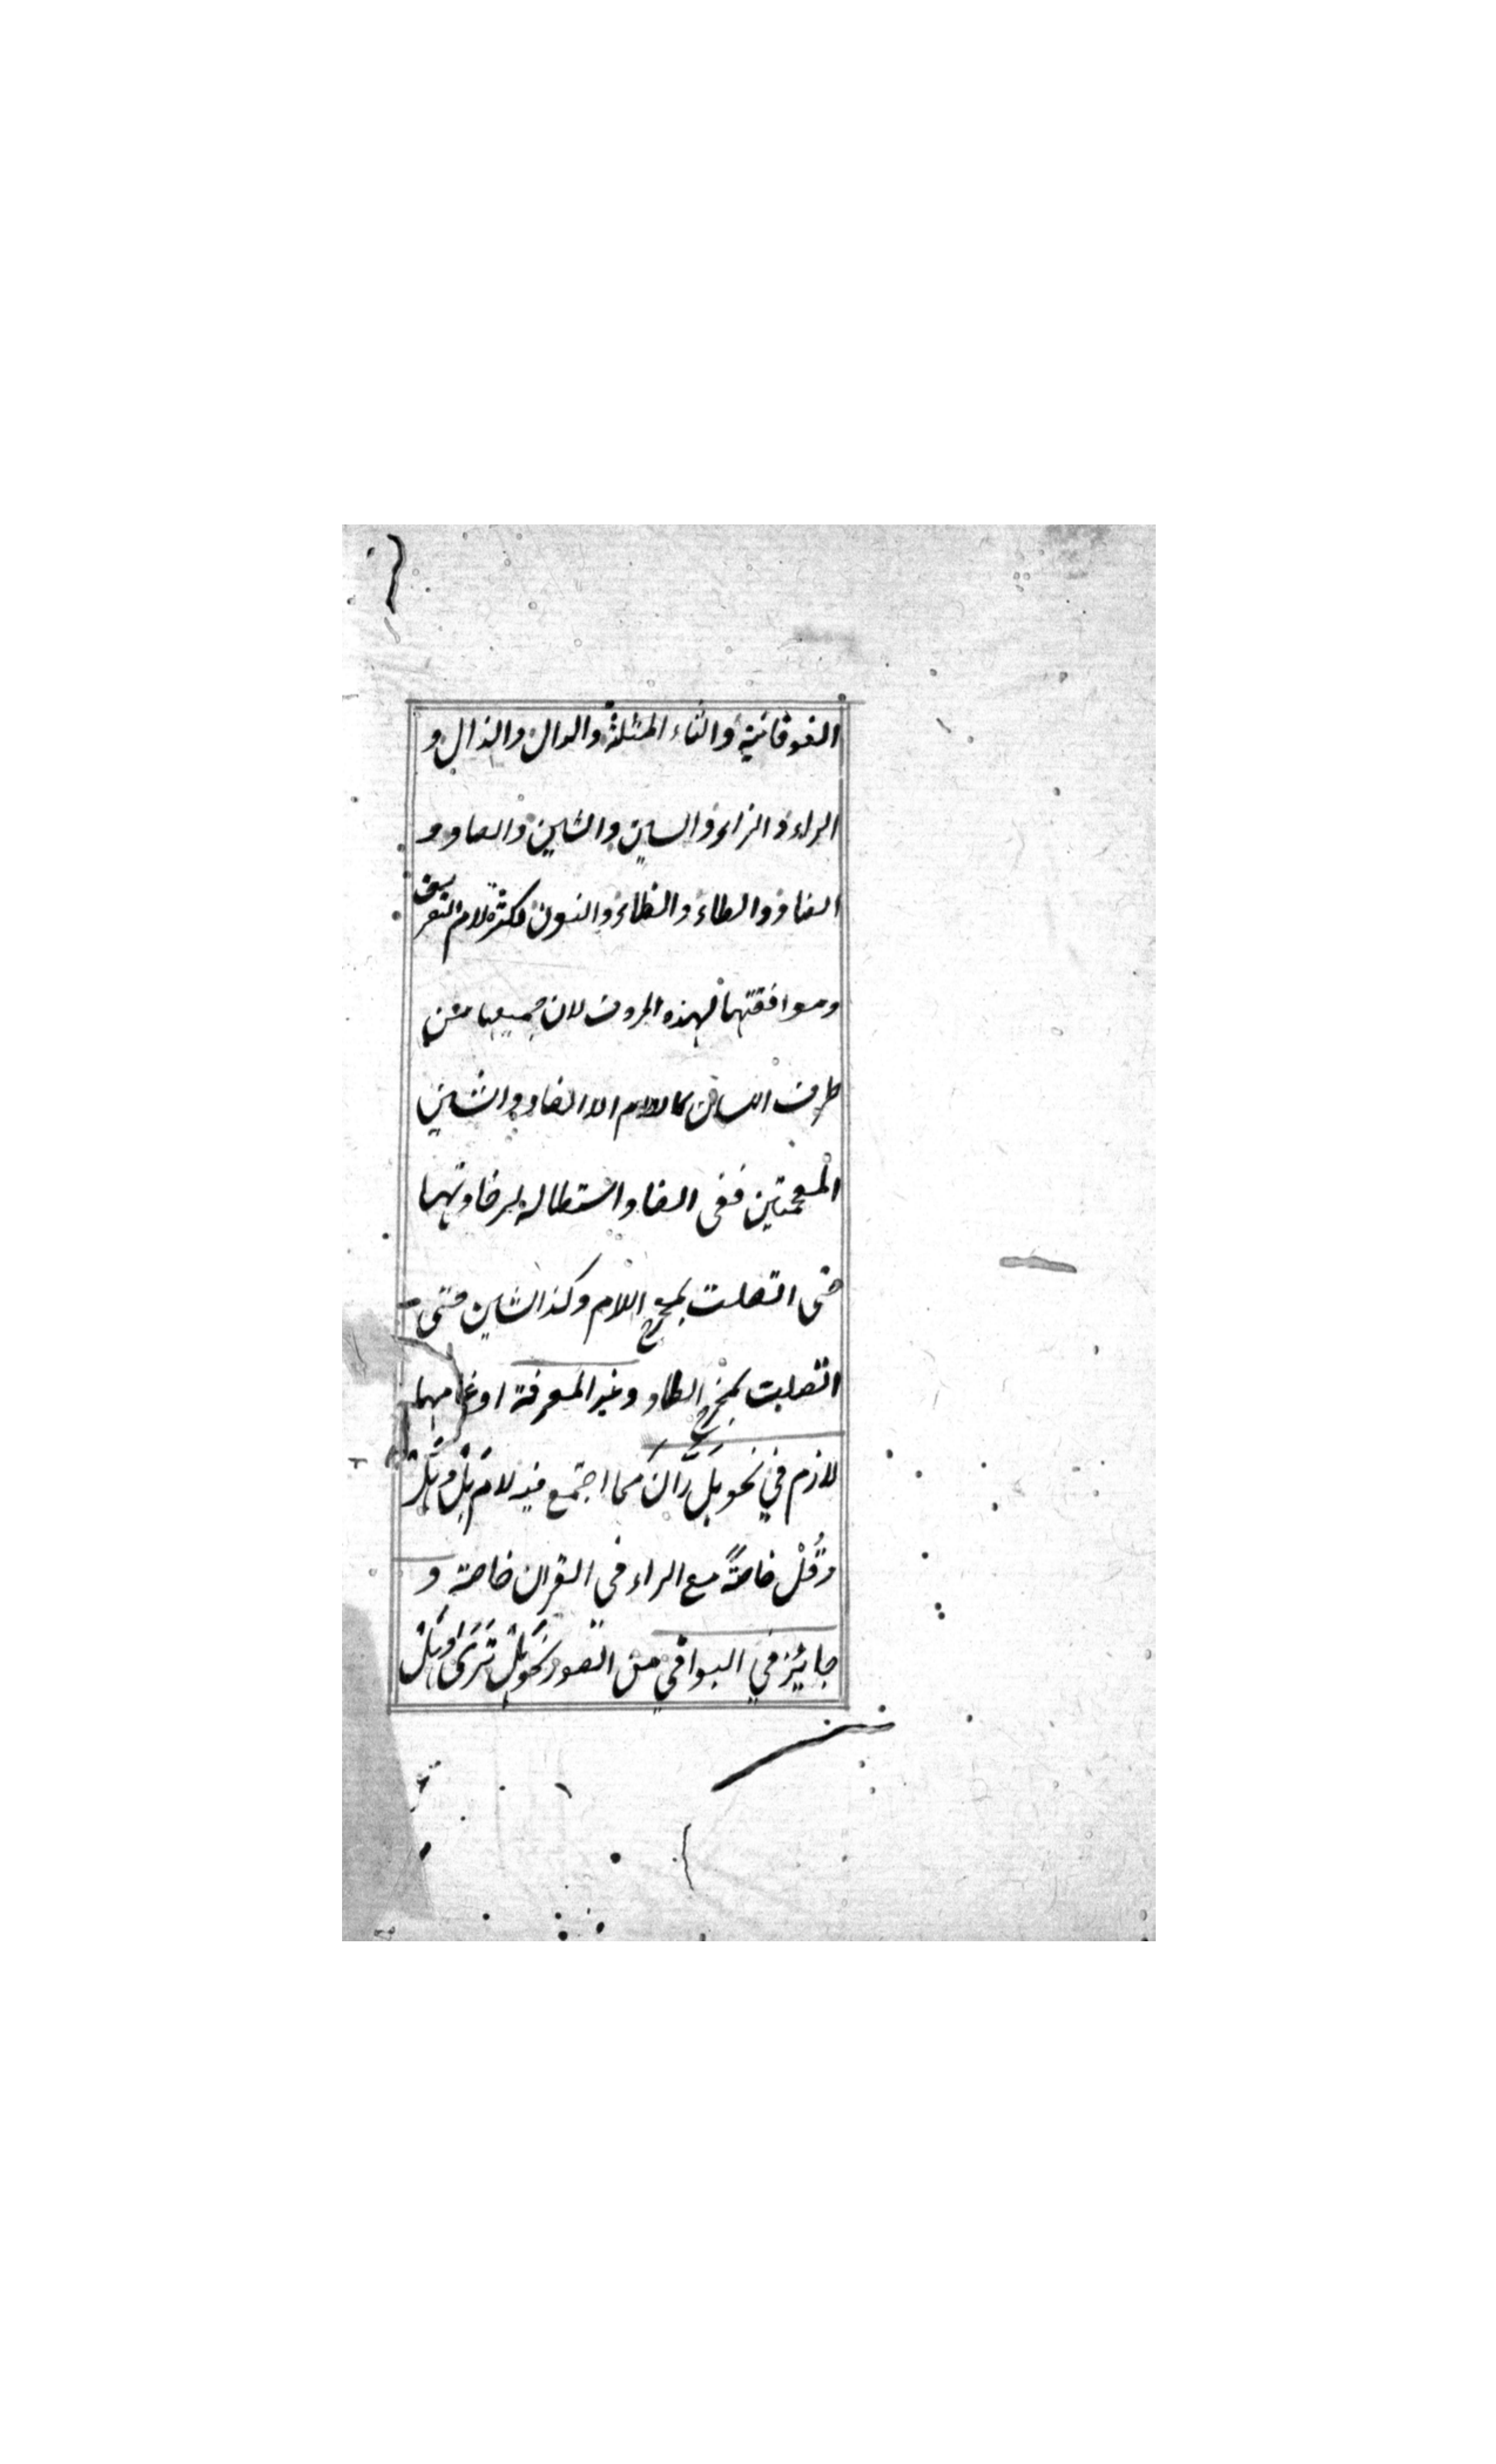 الفوقانية والثاء المثلثة والدال والذال و
الراء والزاء والسين والشين والصاد و
الضاد والطاء والظاء والنون لكثرة لام التعريف
وموافقتها لهذه الحروف لان جميعها من
طرف اللسان كاللام الا الضاد والشين
المعجمتين ففى الضاد استطالة لرخاوتها
حتى اتصلت بمخرج اللام وكذا الشين حتى
اتصلت بمخرج الطاء وغير المعرفة ادغامها
لازم في نحو بَل رَّانَ مما اجتمع فيه لام بَلْ وهَلْ
وقُلْ خاصةً مع الراء في القران خاصة و
جائز في البواقي من الصور نحو بَلْ تَرَى وهَلْ